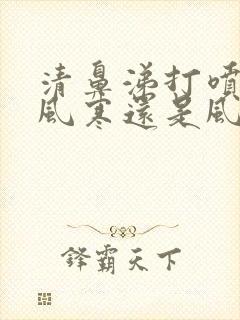 清鼻涕打噴
風寒還是風
鋒霸天下